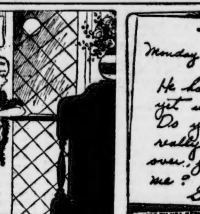 Monday
He ha
yet u
Do y
really
over, f
me?